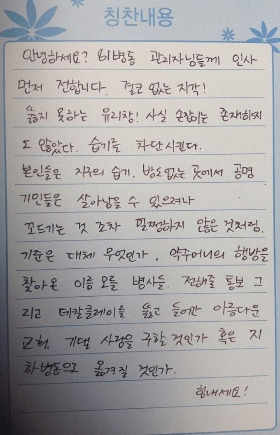 칭찬내용
안녕하세요? 외병동 관리자님들께 인사
먼저 전합니다. 결코 없는 지각!
뚫지 못하는 유리창! 사실 손잡이는 존재하지
도 않았다. 습기를 차단시킨다.
본인들은 지구의 습기. 방도 없는 곳에서 공명
기인들은 살아남을 수 있으려나
꼬드기는 것 조차 말짱하지 않은 것처럼,
기준은 대체 무엇인가, 약주머니의 행방을
찾아온 이름 모를 병사들. 전해줄 통보 그
리고 데칼클레이를 뚫고 들어간 아름다운
교회, 기댈 사람을 구할 것인가 혹은 지
하병동으로 옮겨질 것인가.
힘내세요!